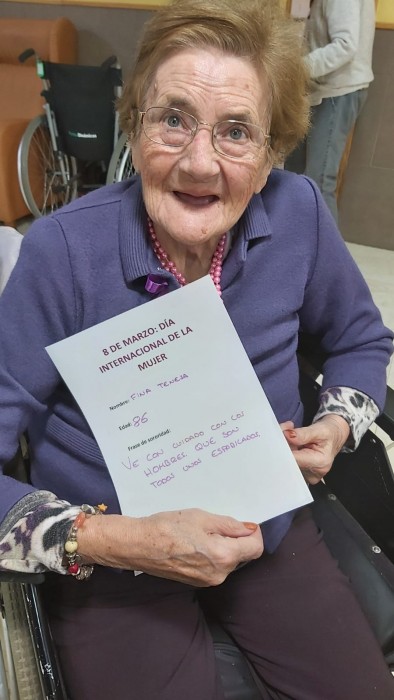 8 DE MARZO: DÍA
INTERNACIONAL DE LA
MUJER
Nombre: FINA TENEZA
Edad: 86
Frase de sororidad:
VE CON CUIDADO CON LOS
HOMBRES QUE SON
TODOS UNOS ESPABILADOS